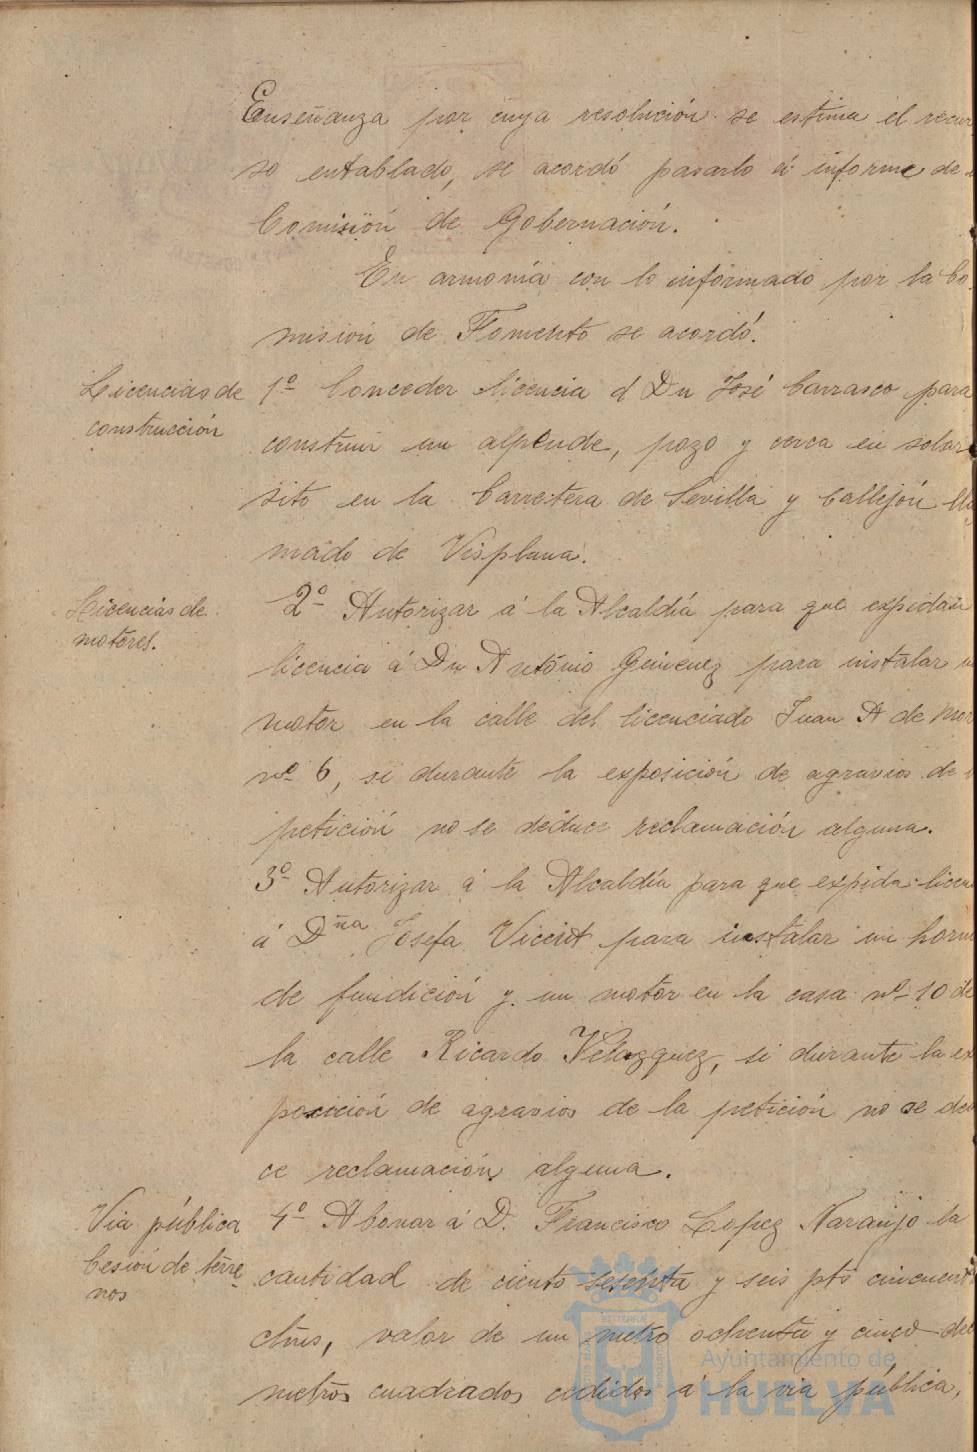 Enseñanza por cuya resolución se estima el recur
so entablado, se acordó pasarlo á informe de
Comisión de Gobernación.
En armonía con lo informado por la Co
misión de Fomento se acordó.
Licencias de
construcción
1º Conceder licencia á Dn José Carrasco para
construir un alpende, pozo y cerca en solar
sito en la Carretera de Sevilla y Callejón lla
mado de Visplana.
Licencias de
motores.
2º Autorizar á la Alcaldía para que expida
licencia á Dn Antonio Gimenez para instalar
motor en la calle del licenciado Juan A de Mor
nº 6, si durante la exposición de agravios de
petición no se deduce reclamación alguna.
3º Autorizar á la Alcaldía para que expida licen
á Dña Josefa Vicent para instalar un horno
de fundición y un motor en la casa nº 10 de
la calle Ricardo Velazquez, si durante la ex
posición de agravios de la petición no se dedu
ce reclamación alguna.
Via pública
Cesión de terre
nos
4º Abonar á D. Francisco Lopez Naranjo la
cantidad de ciento sesenta y seis pts cincuenta
ctms, valor de un metro ochenta y cinco deci
metros cuadrados cedidos á la via pública.
Ayuntamiento de
HUELVA